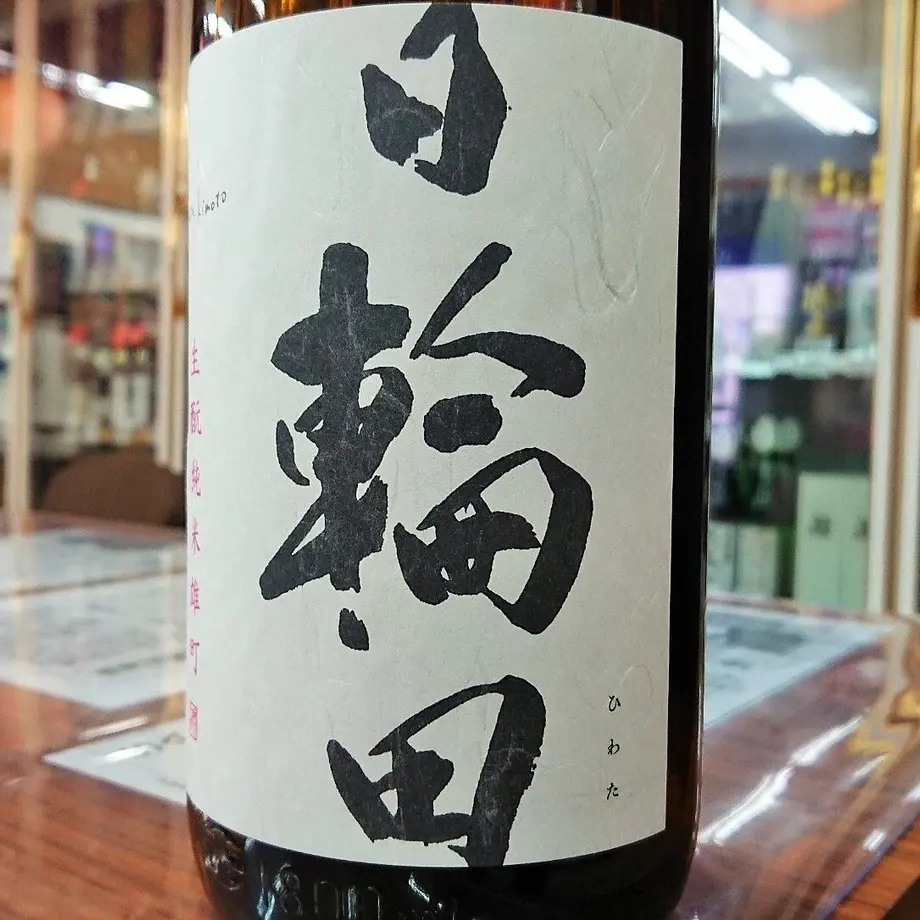 日輪田
ひわた
kimoto
生酛純米雄町酒